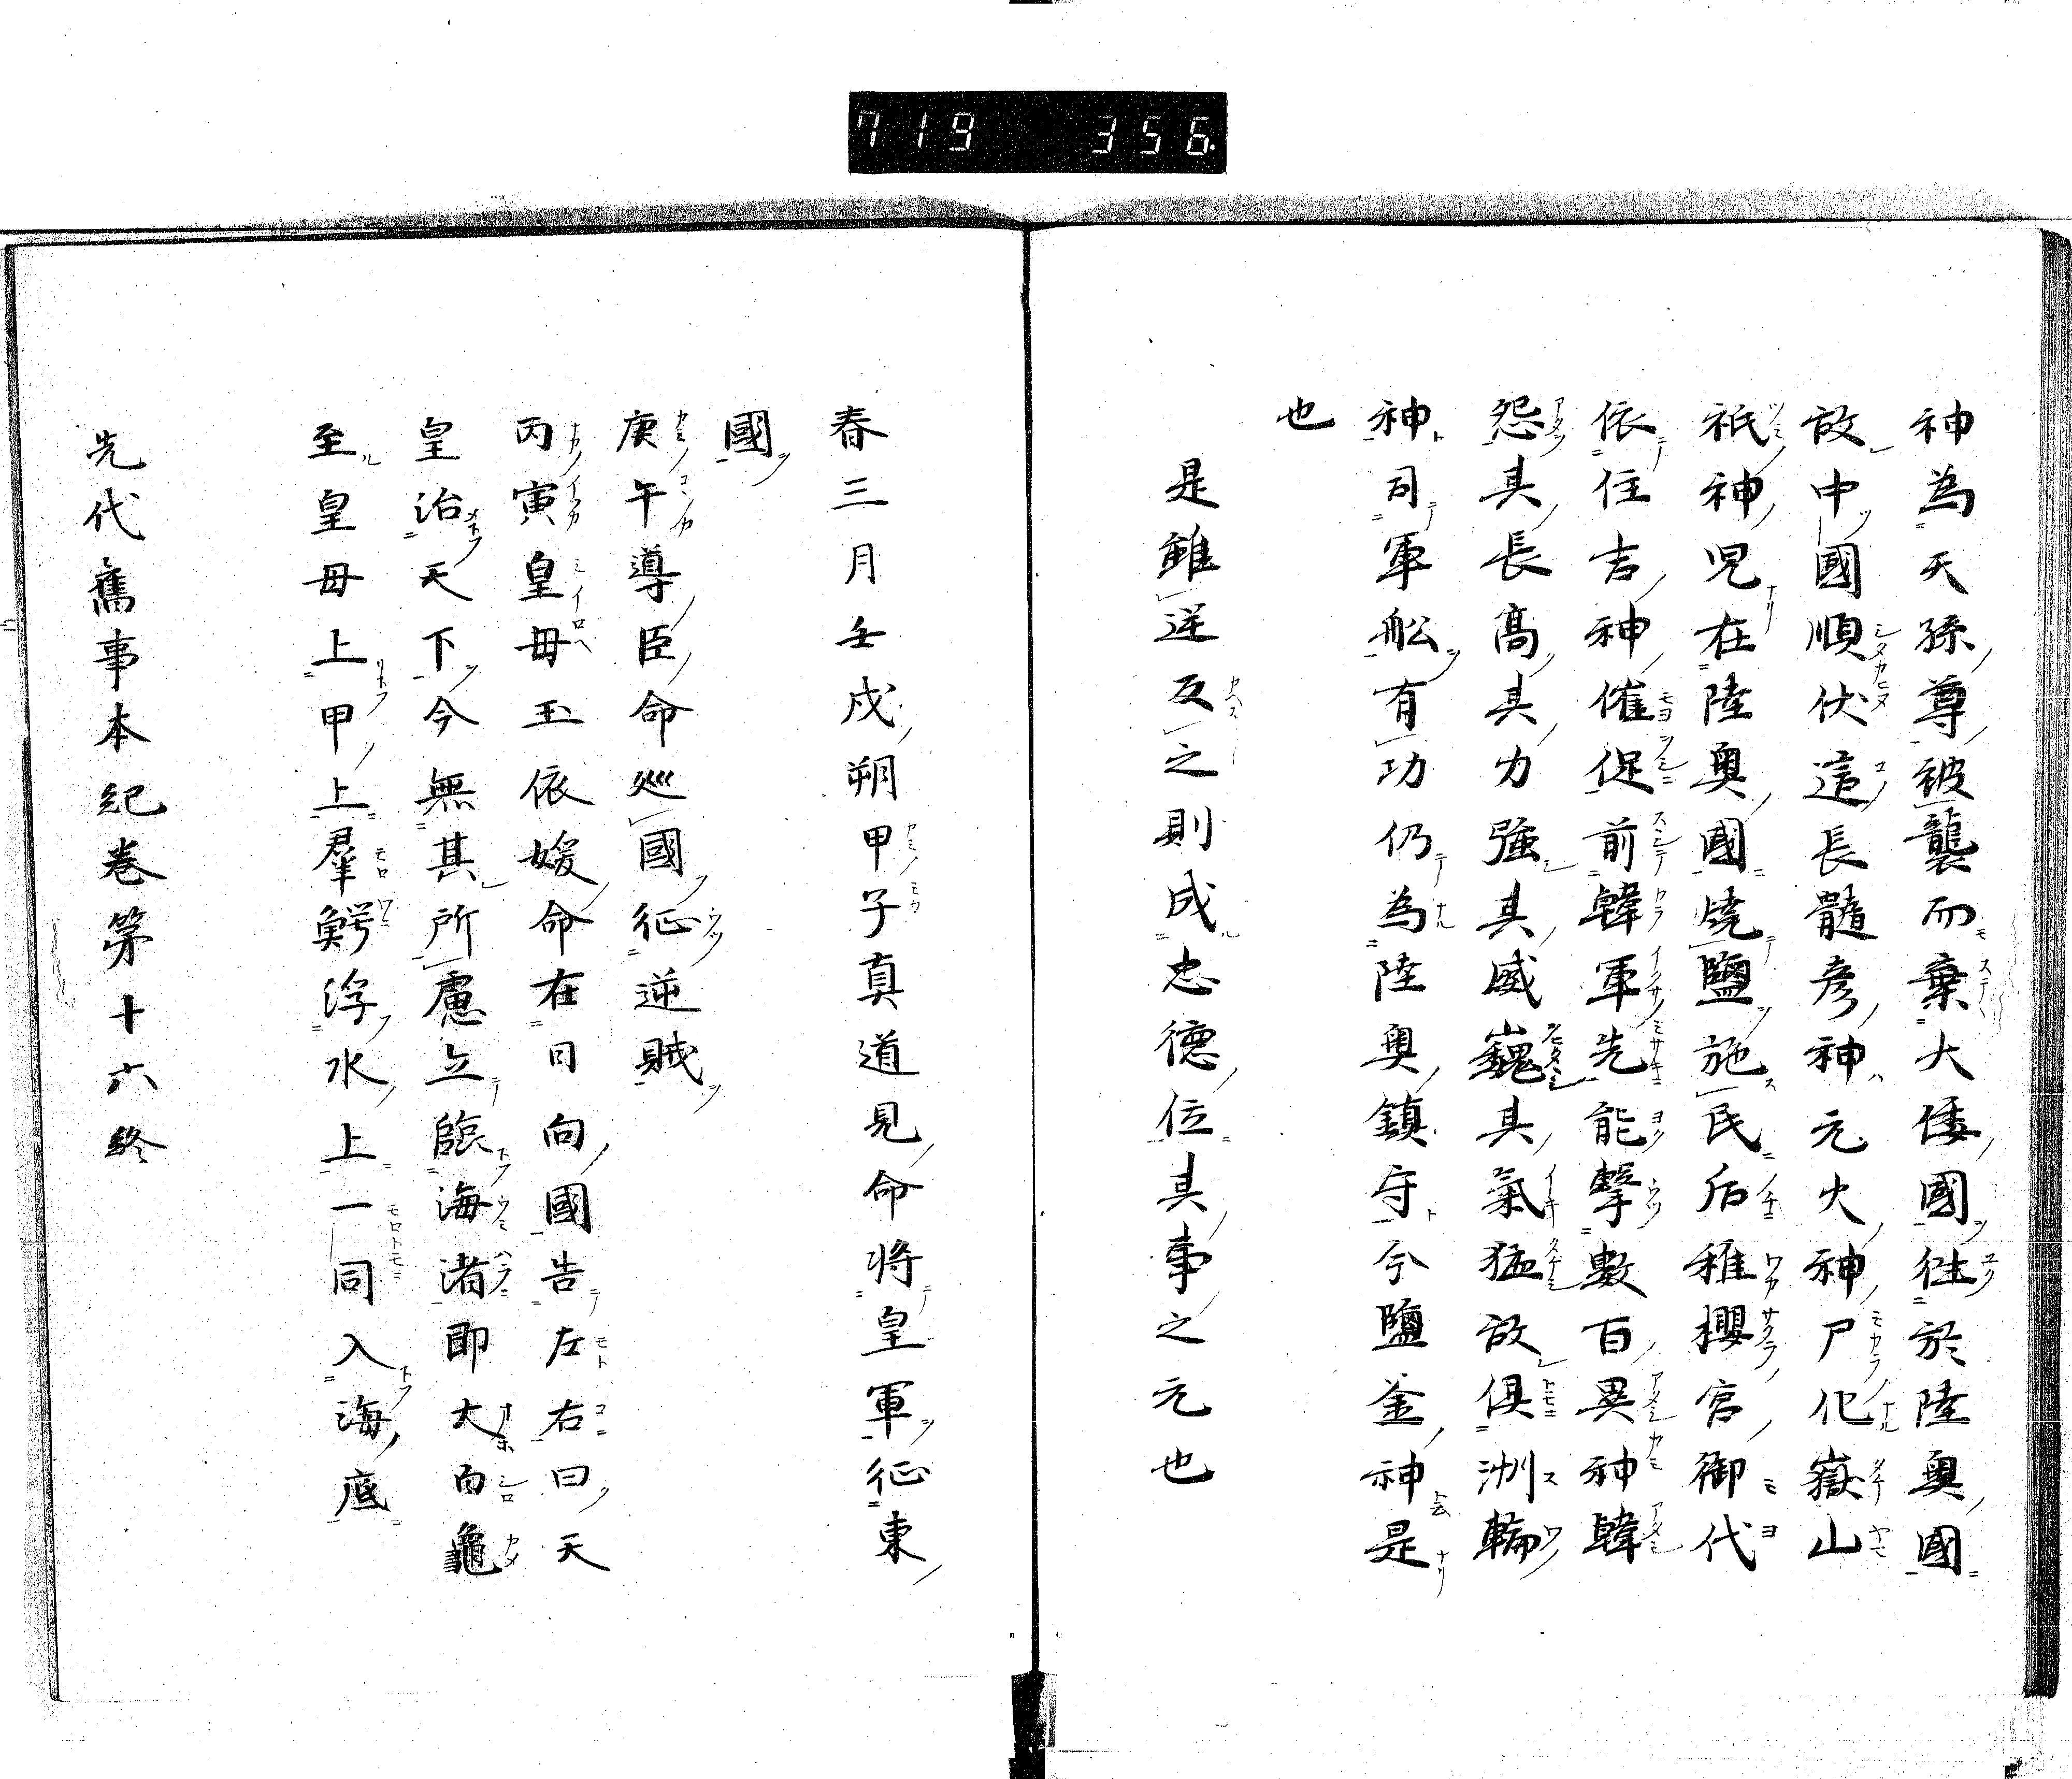 719 356
神為天孫尊被襲而棄大倭國徃於陸奥國
故中國順伏這長髓彦神元火神尸化嶽山
祇神児在陸奥國焼鹽施民后稚櫻宮御代
依住吉神催促前韓軍先能擊數百異神韓
怨其長高其力強其威巍其氣猛故俱洲輪
神司軍舩有功仍為陸奥鎮守今鹽釜神是
也
是雖逆反之則成忠德位其事之元也
春三月壬戌朔甲子真道見命将皇軍征東
國
庚午導臣命巡國征逆賊
丙寅皇毋玉依媛命在日向國告左右曰天
皇治天下今無其所慮立臨海渚即大白龜
至皇毋上甲上羣鰐浮水上一同入海底
先代舊事本紀巻第十六終